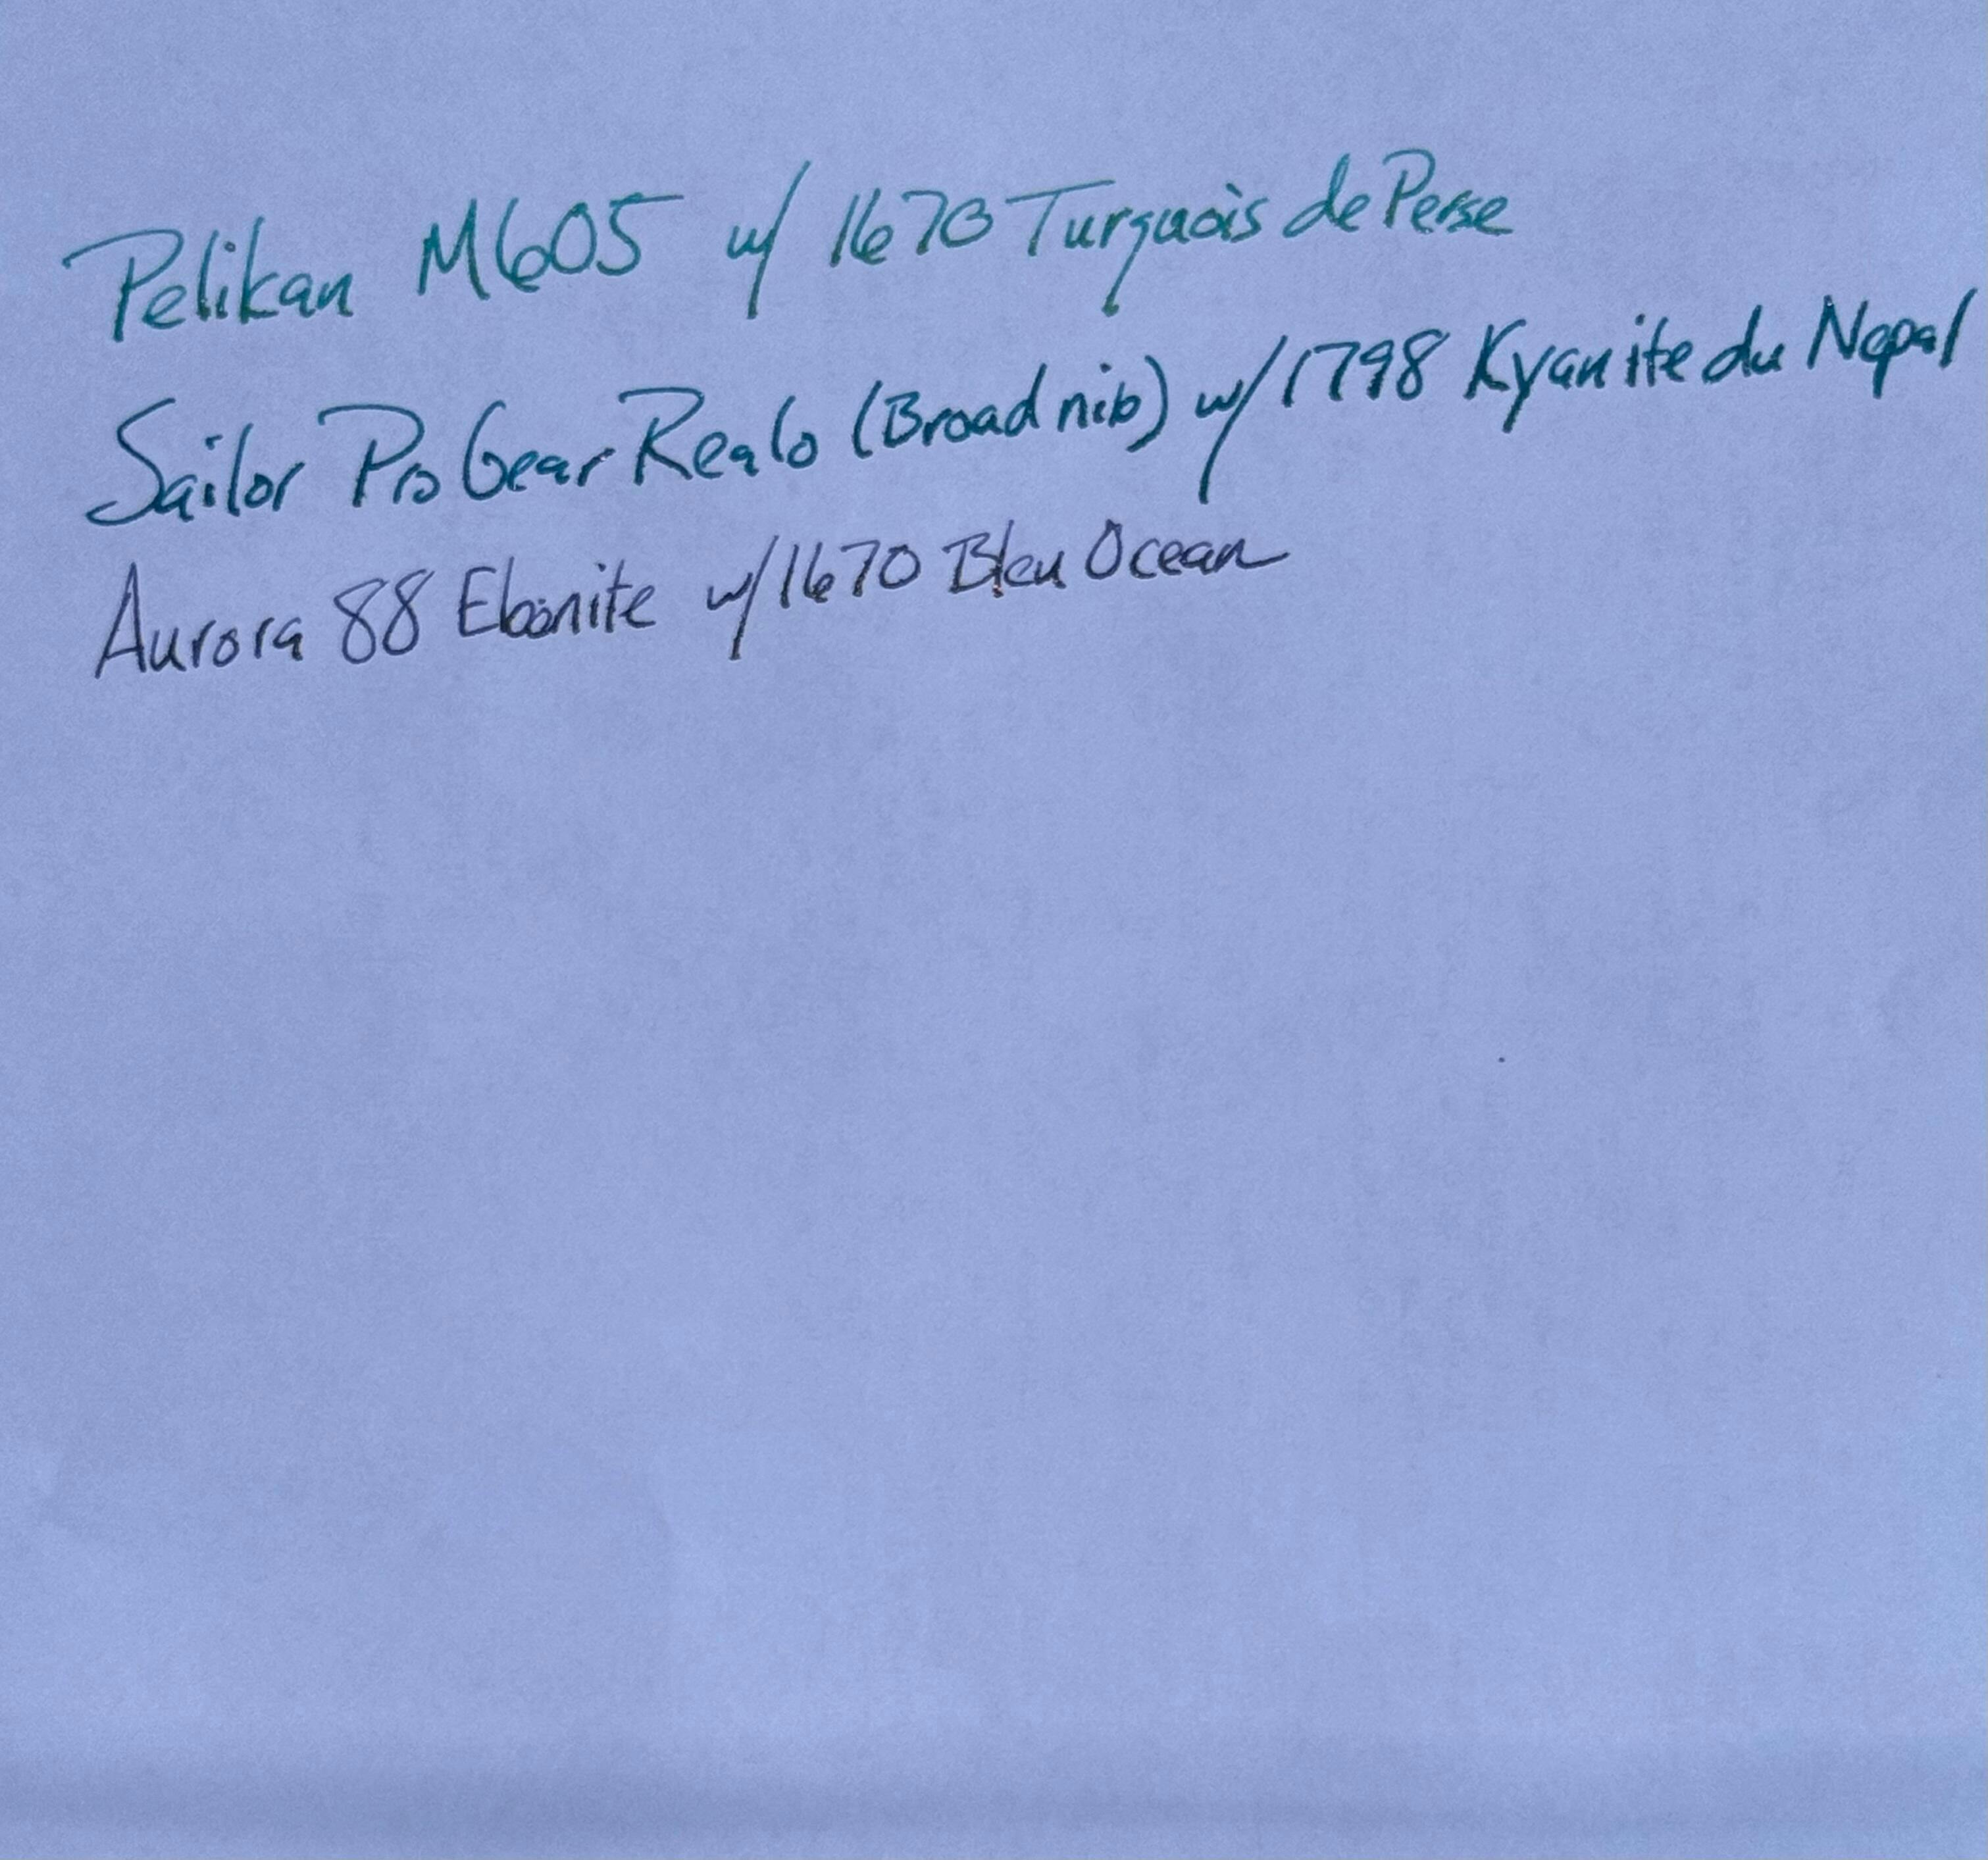 Pelikan M605 w/ 1670 Turquois de Perse
Sailor Pro Gear Realo (Broad nib) w/ 1798 Kyanite du Nepal
Aurora 88 Ebonite w/ 1670 Bleu Ocean